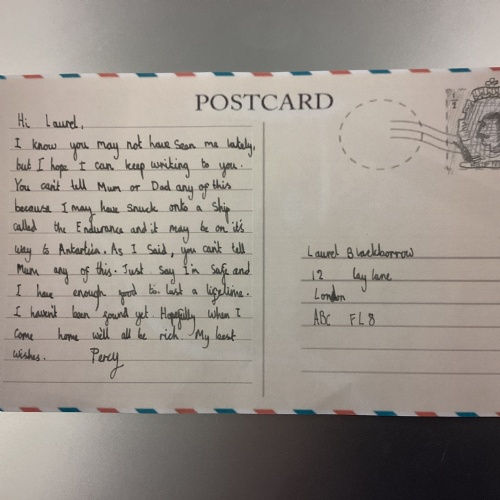 POSTCARD
Hi Laurel,
I know you may not have seen me lately,
but I hope I can keep writing to you.
You can't tell Mum or Dad any of this
because I may have snuck onto a ship
called the Endurance and it may be on it's
way to Antartica. As I said, you can't tell
Mum any of this. Just say I'm safe and
I have enough food to last a lifetime.
I haven't been found yet. Hopefully when I
come home we'll all be rich. My best
wishes. Percy
Laurel Blackborrow
12 lay lane
London
ABC FL8